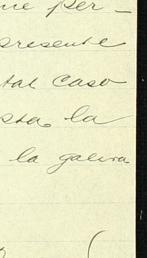 me per-
presente
tal caso
sta, la
la galera